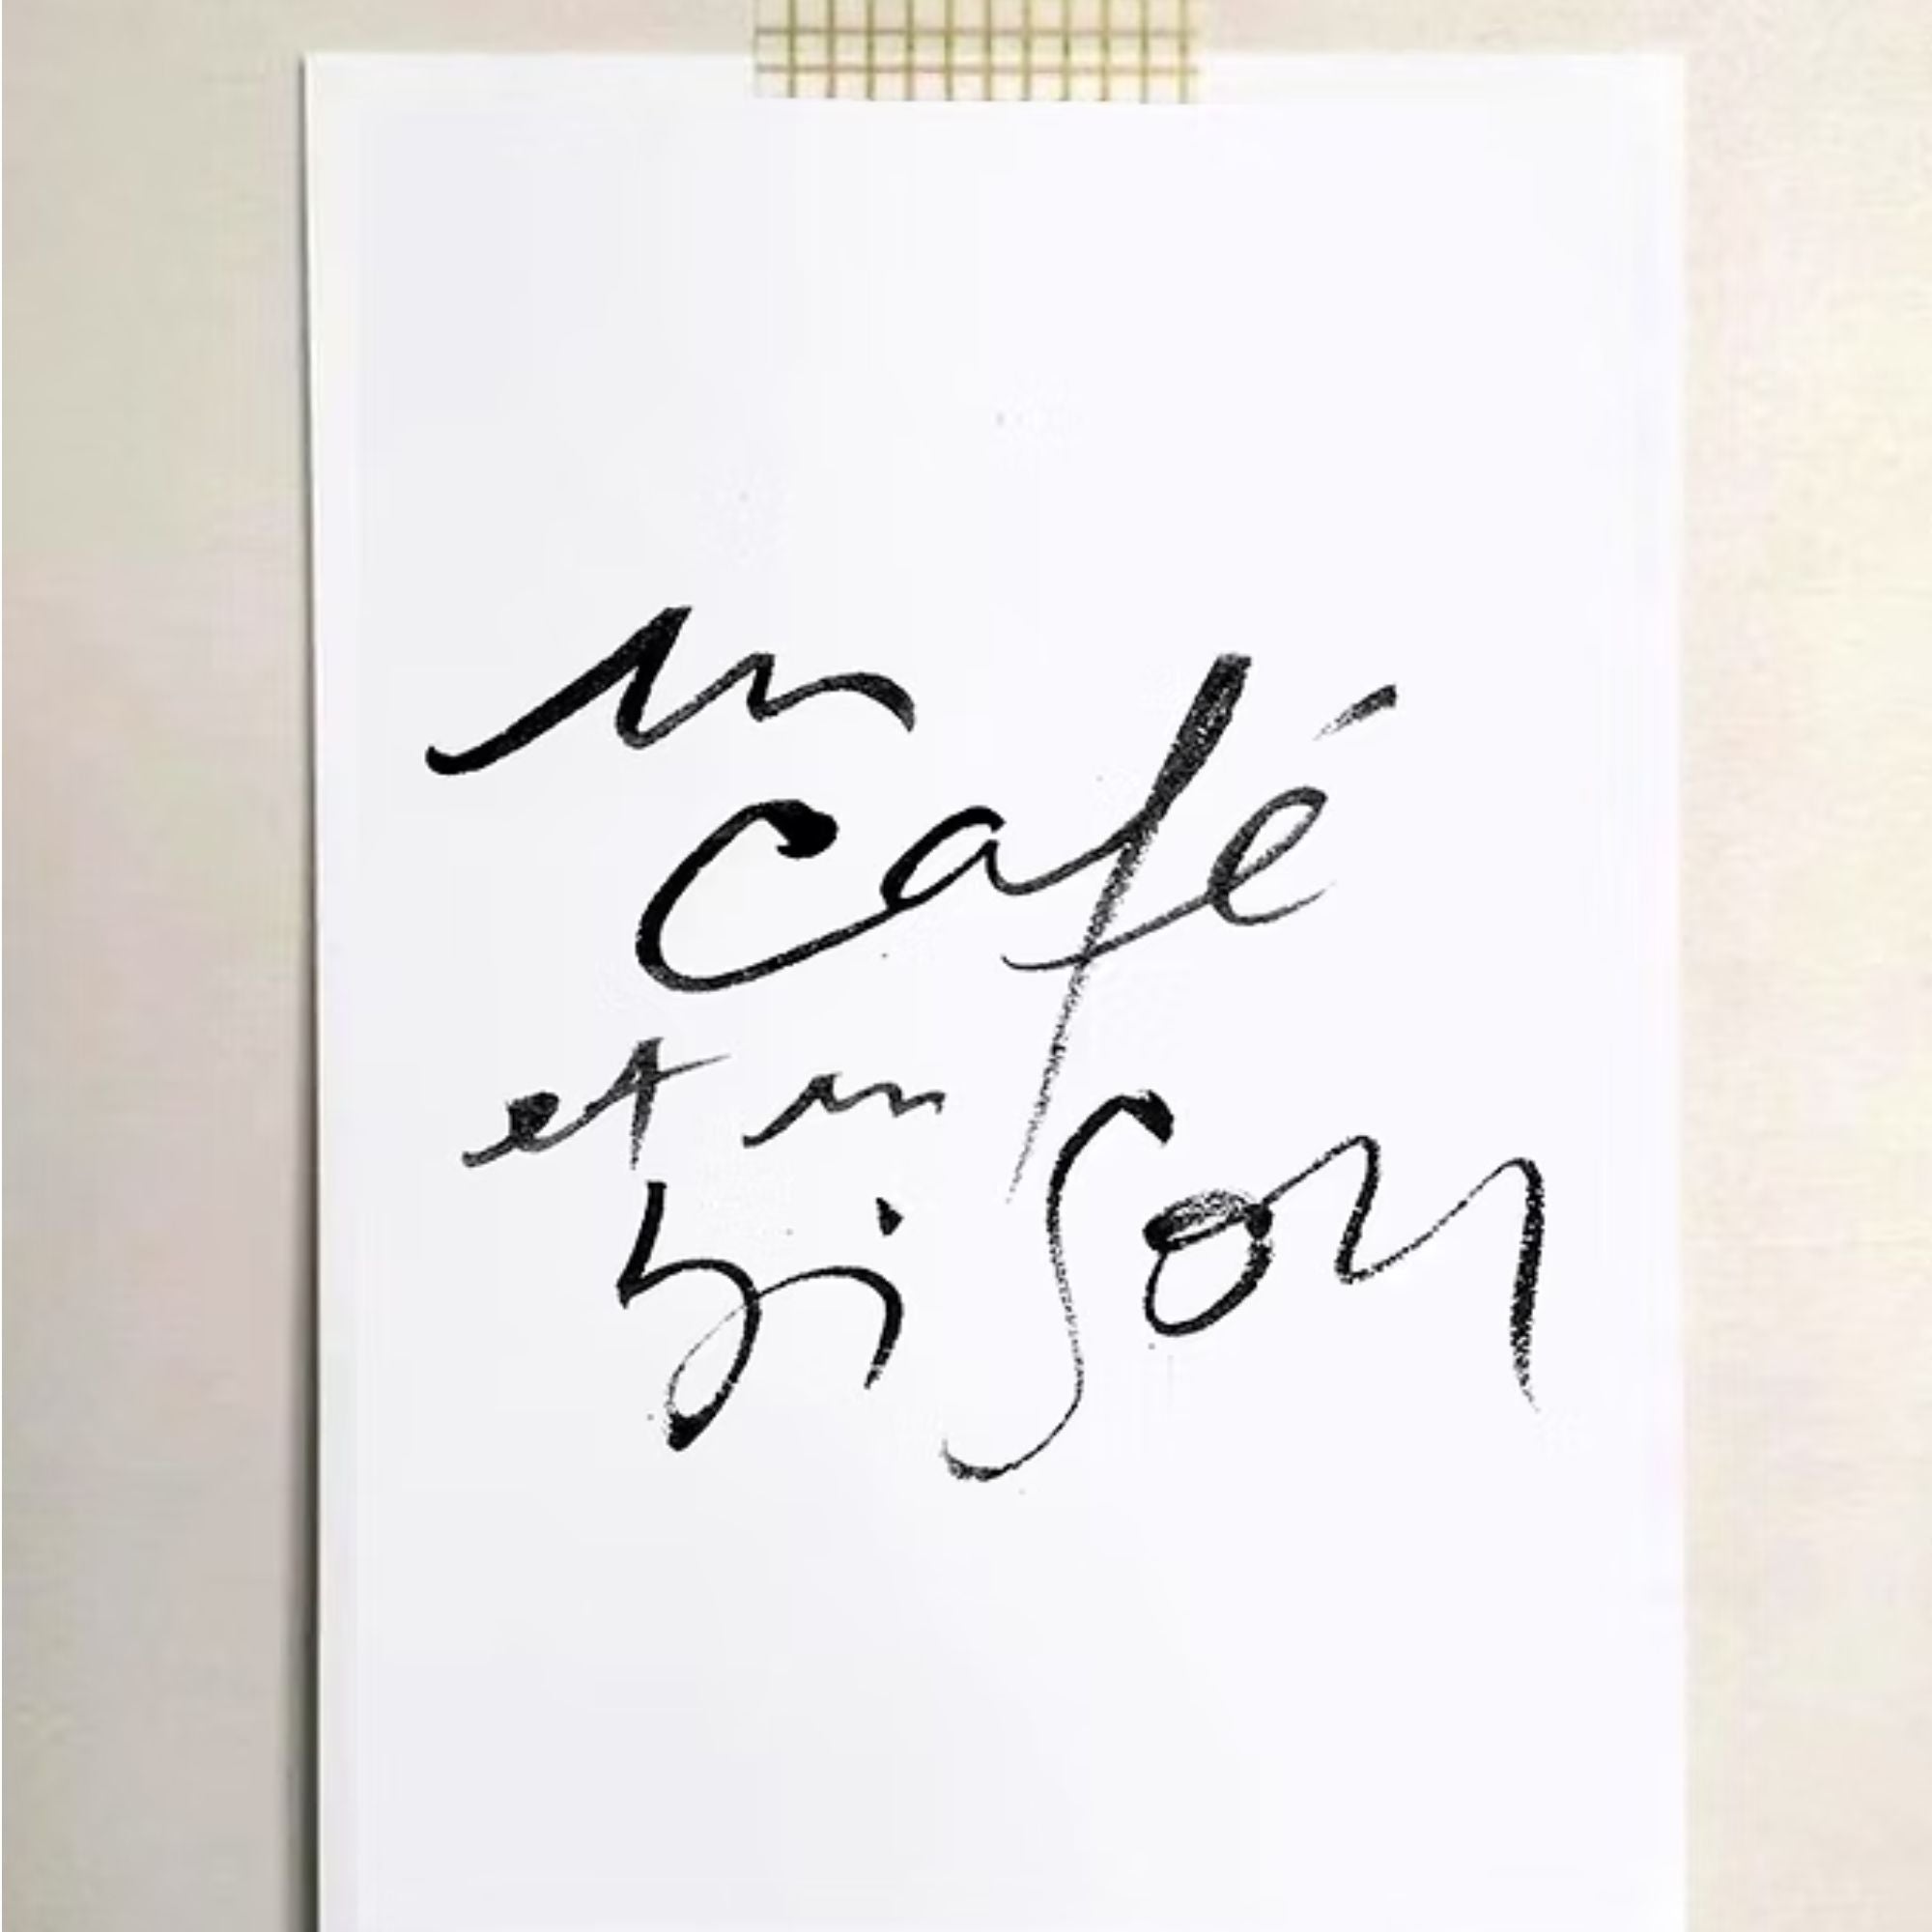 un
café
et un
bison